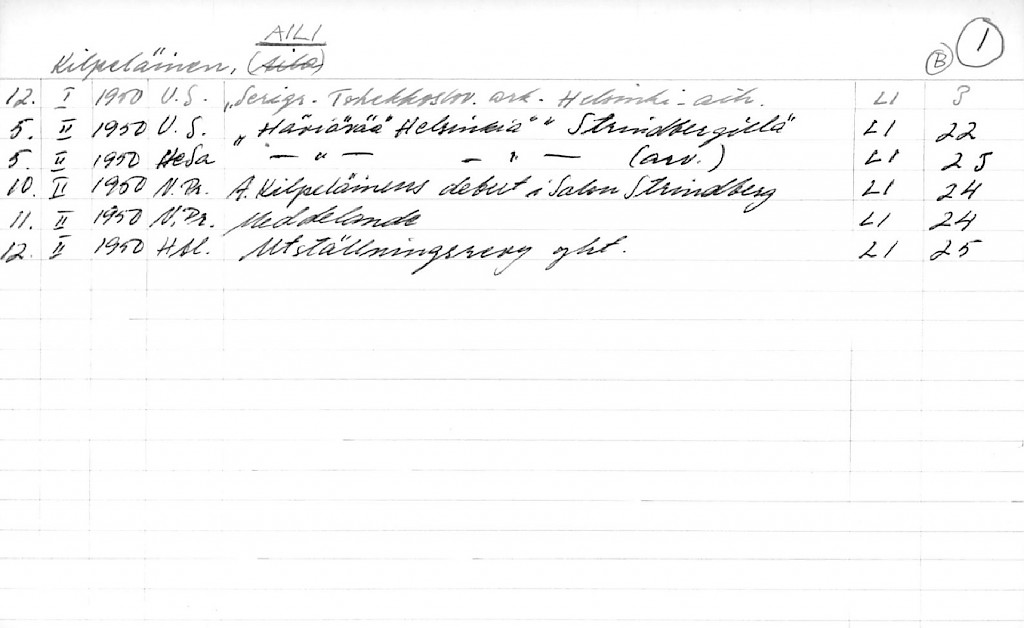 AILI
Kilpeläinen, (Aila) B 1
12. I 1950 U.S. "Serigr. Tshekkoslov. ark. Helsinki-aih. LI 3
5. II 1950 U.S. "Häviävää Helsinkiä" Strindbergillä" LI 22
5. II 1950 HeSa — " — — " — (arv.) LI 25
10. II 1950 N.Pr. A. Kilpeläinens debut i Salon Strindberg LI 24
11. II 1950 N.Pr. Meddelande LI 24
12. II 1950 Hbl. Utställningsrevy LI 25